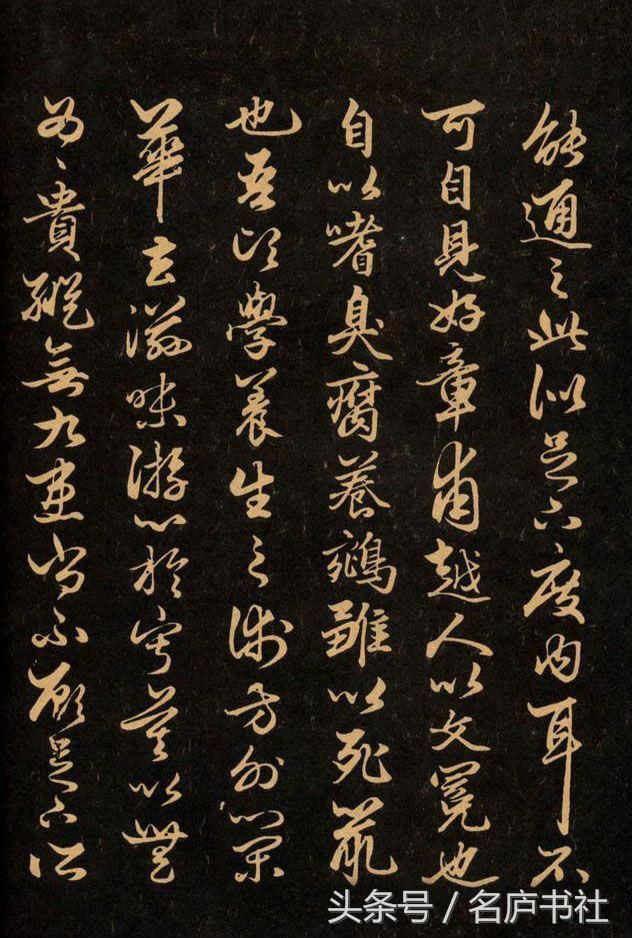 能通之此似足下度内耳不
可自見好章甫越人以文冕也
自以嗜臭腐養鵷雛以死鼠
也吾頃學養生之術方外榮
華去滋味游心於寂寞以無
為〻貴縱無九患尚不顧足下所
头条号 / 名庐书社